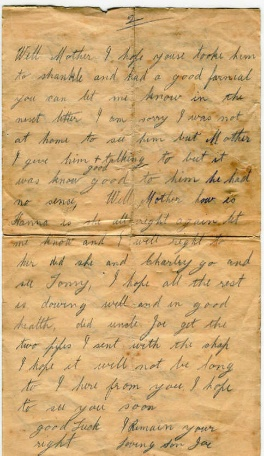 2
Well Mother I hope youse tooke him
to shankle and had a good furnial
you can let me know in the
next letter I am sorry I was not
at home to see him but Mother
I give him + talking to but it
good
was know good to him he had
no sense, Well Mother how is
Hanna is she all right again let
me know and I will right to
her did she and Charley go and
see Tomy, I hope all the rest
is dowing well and in good
health, did uncle Joe get the
two pipes I sent with the chap
I hope it will not be long
to I here from you I hope
to see you soon
good luck I Remain your
right loving son Joe